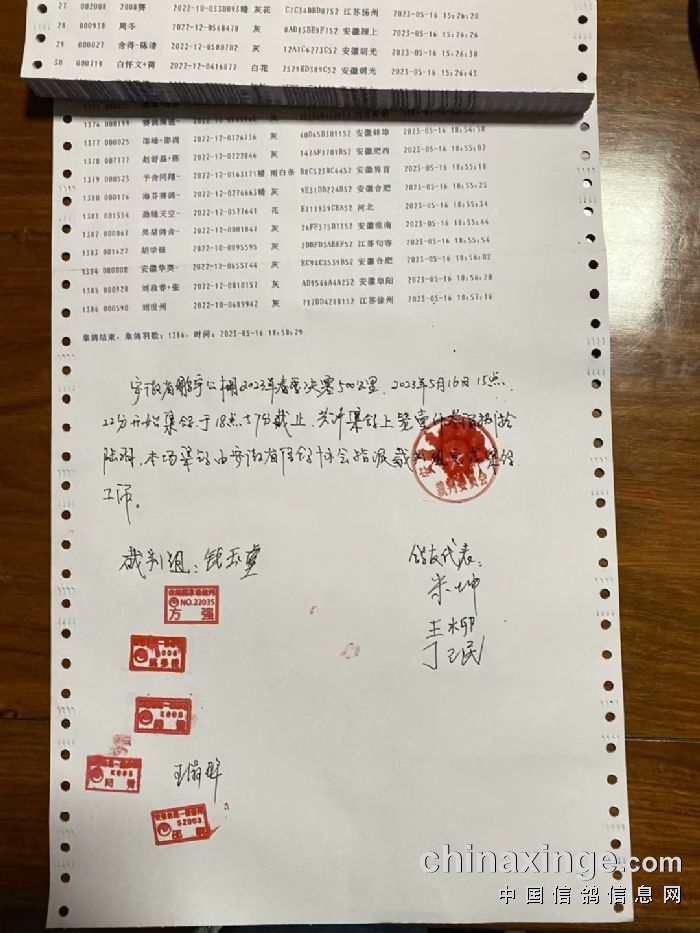 27 002008 2008赛 2022-10-0330093精 灰花 C7C34BBD0752 江苏扬州 2023-05-16 15:26:20
28 000938 周冬 2022-12-0568478 灰 安徽颍上 2023-05-16 15:26:26
29 000027 舍得-陈清 2022-12-0580702 灰 12A1C6273C52 安徽明光 2023-05-16 15:26:30
30 000719 白怀文+蒋 2022-12-0416872 白花 2529ED389C52 安徽明光 2023-05-16 15:26:43
1376 000199 灰 40D65B301152 安徽蚌埠 2023-05-16 18:54:58
1377 000025 邵峰-邵润 2022-12-0126736 灰 147AF1701B52 安徽肥西 2023-05-16 18:55:02
1378 007777 赵舒磊+陈 2022-12-0722846 灰 安徽界首 2023-05-16 18:55:18
1379 000523 予舍同翔- 2022-12-0163171精 雨白条 安徽合肥 2023-05-16 18:55:23
1380 000176 海芬赛鸽- 2022-12-0276663精 灰 9E31DB224B52 河北 2023-05-16 18:55:34
1381 001554 勋驰天空- 2022-12-0577641 花 E111939CEA52 安徽淮南 2023-05-16 18:55:44
1382 000067 吴喆鸽舍- 2022-12-0001047 灰 26FF375D7352 江苏句容 2023-05-16 18:55:54
1383 001627 胡学锋 2022-10-0095595 灰 2DBFD5AEEF52 安徽合肥 2023-05-16 18:56:02
1384 000808 安徽华奥- 2022-12-0655744 灰 EC94E3539B52 安徽阜阳 2023-05-16 18:56:20
1385 000928 刘政春+张 2022-12-0810157 灰 AD9546A4A252 江苏徐州 2023-05-16 18:57:16
1386 000590 刘世州 2022-10-0689942 灰 717DD4288152
集鸽结束,集鸽羽数:1386,时间:2023-05-16 18:58:29
安徽省鹏宇公棚2023年春季决赛500公里,2023年5月16日15点
22分开始集鸽于18点57分截止,共计集鸽上笼壹仟叁佰捌拾
陆羽,本场集鸽由安徽省信鸽协会指派裁判组完成集鸽
工作。
裁判委员会
裁判组:钱玉堂
鸽友代表:
朱坤
王柳
丁己民
NO.22035
方强
K008
K005
王俊辉
SZ003
邵
chinaxinge.com
中国信鸽信息网